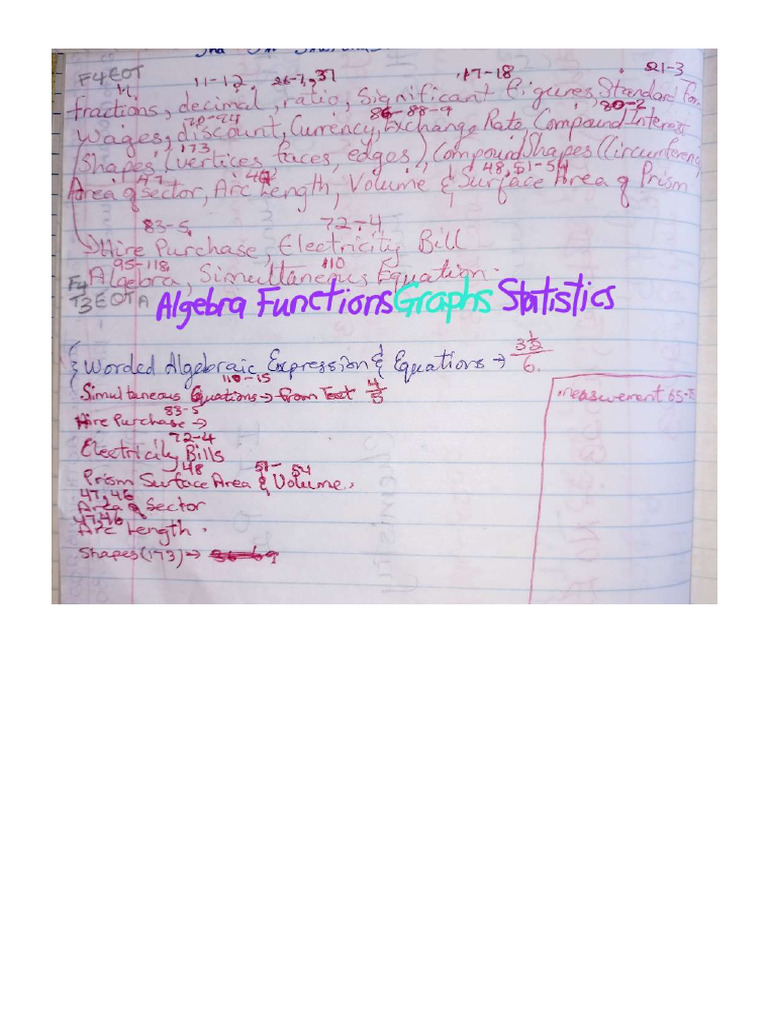 F4EOT 11-12 26-7, 37 17-18 21-3
11
fractions, decimal, ratio, Significant figures, Standard for
70-74 86-88-9 80-2
Wages, discount, Currency, Exchange Rate, Compound Interest
173
Shapes (vertices, faces, edges), Compound Shapes (Circumferenc
47 46 48, 51-54
Area of sector, Arc Length, Volume & Surface Area of Prism
83-5 72-4
Hire Purchase, Electricity Bill
95-118 110
F4 Algebra, Simultaneous Equation.
T3 EOT A Algebra Functions Graphs Statistics
Worded Algebraic Expression & Equations → 6.
110-15
Simultaneous Equations → from Text 4/5
83-5
Hire Purchase →
72-4
Electricity Bills
48 51- 54
Prism Surface Area & Volume.
47, 46
Area of Sector
47, 46
Arc Length.
Shapes (173) →
measurement 65-